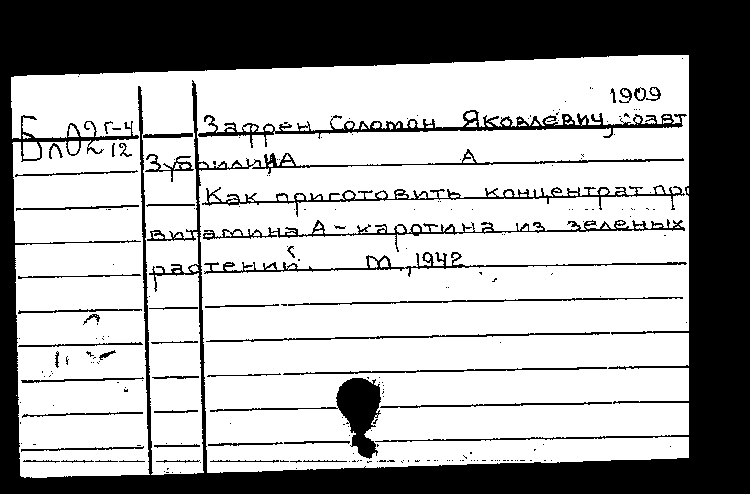 1909
Бл02 Г-4/12 Зафрен, Соломон Яковлевич, соавт
Зубрилина А
Как приготовить концентрат про
витамина А - каротина из зеленых
растений. М., 1942